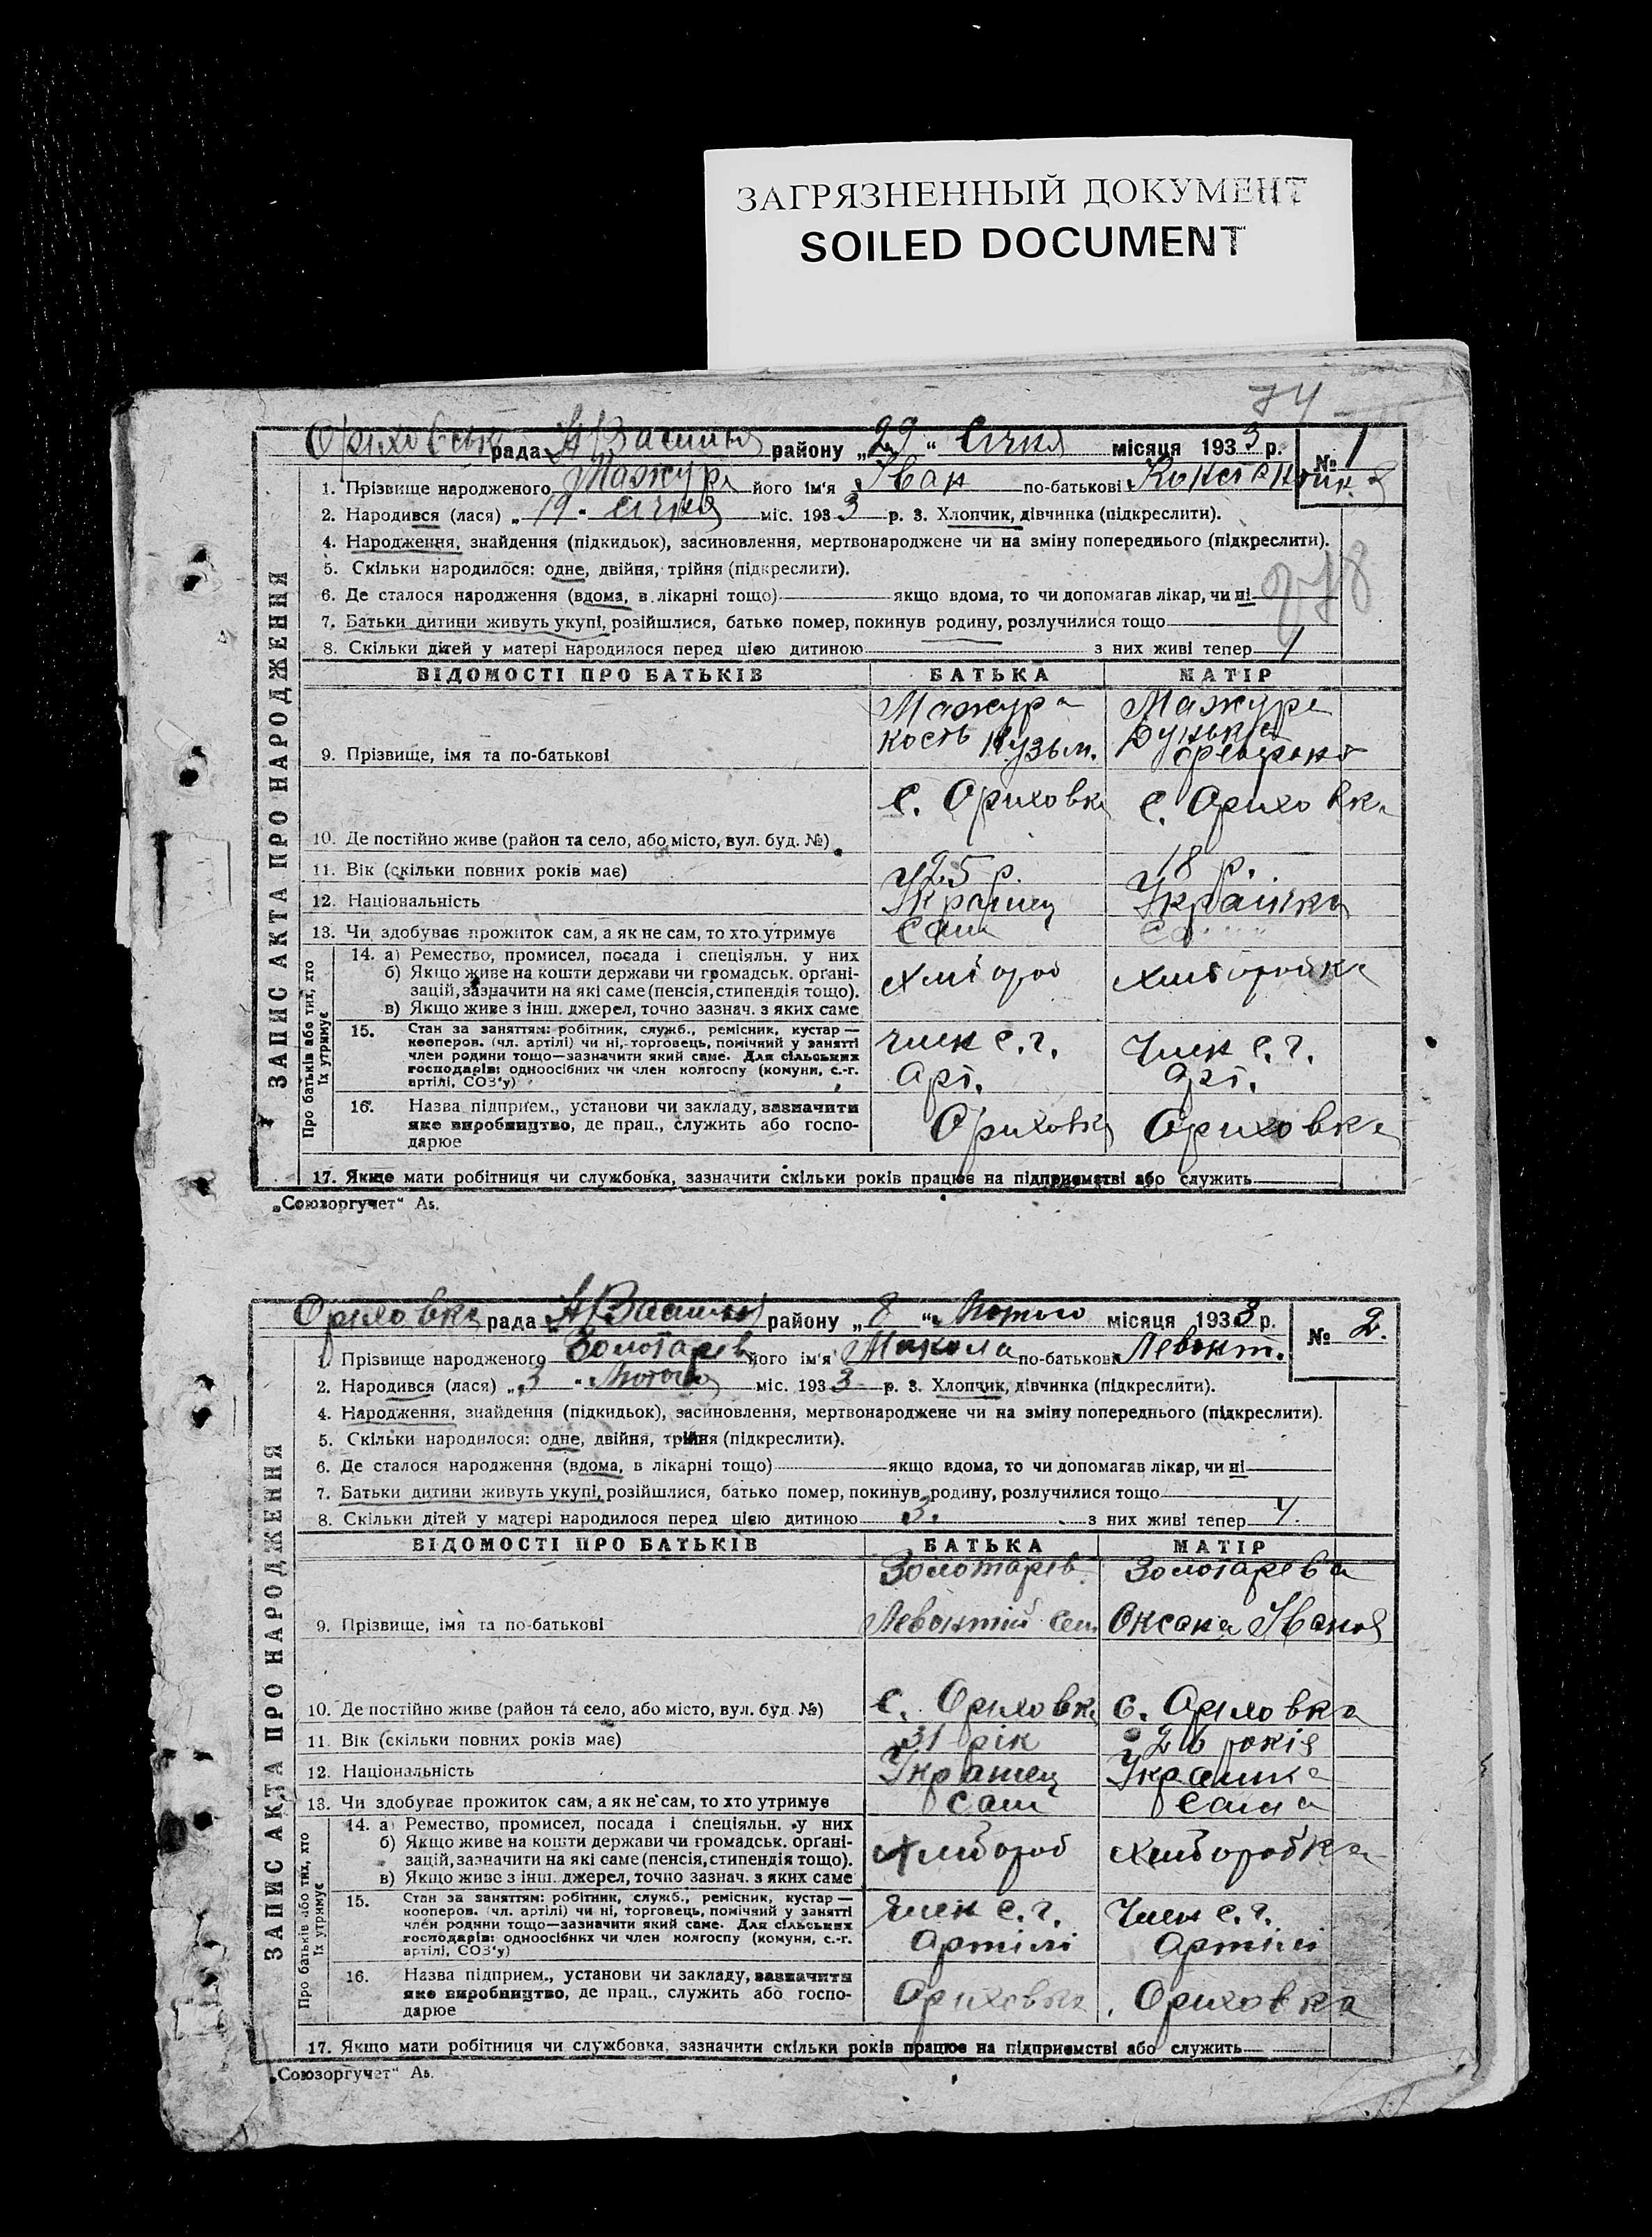 ЗАГРЯЗНЕННЫЙ ДОКУМЕНТ
SOILED DOCUMENT
74
рада району „29“ Січня місяця 1933 р. № 1
1. Прізвище народженого Мажура його ім'я Іван по-батькові
2. Народився (лася) „19“ Січня міс. 1933 р. 3. Хлопчик, дівчинка (підкреслити).
4. Народження, знайдення (підкидьок), засиновлення, мертвонароджене чи на зміну попереднього (підкреслити).
5. Скільки народилося: одне, двійня, трійня (підкреслити).
6. Де сталося народження (вдома, в лікарні тощо) якщо вдома, то чи допомагав лікар, чи ні
278
7. Батьки дитини живуть укупі, розійшлися, батько помер, покинув родину, розлучилися тощо
8. Скільки дітей у матері народилося перед цією дитиною з них живі тепер 1
ЗАПИС АКТА ПРО НАРОДЖЕННЯ
ВІДОМОСТІ ПРО БАТЬКІВ БАТЬКА МАТІР
Мажура Мажура
9. Прізвище, імя та по-батькові Кость Кузьм.
с. Ориховка с. Ориховка
10. Де постійно живе (район та село, або місто, вул. буд. №)
11. Вік (скільки повних років має) 25 р. 18 р.
12. Національність Украінец Украінка
13. Чи здобуває прожиток сам, а як не сам, то хто утримує Сам
Про батьків або тих, хто їх утримує
14. а) Ремество, промисел, посада і спеціяльн. у них
б) Якщо живе на кошти держави чи громадськ. органі-
зацій, зазначити на які саме (пенсія, стипендія тощо). хлібороб хліборобка
в) Якщо живе з інш. джерел, точно зазнач. з яких саме
15. Стан за заняттям: робітник, служб., ремісник, кустар —
кооперов. (чл. артілі) чи ні, торговець, помічний у занятті член с. г. Член с. г.
член родини тощо—зазначити який саме. Для сільських
господарів: одноосібних чи член колгоспу (комуни, с.-г. арт. арт.
артілі, СОЗ'у)
16. Назва підприєм., установи чи закладу, зазначити
яке виробництво, де прац., служить або госпо- Ориховка Ориховка
дарює
17. Якще мати робітниця чи службовка, зазначити скільки років працює на підприємстві або служить
„Союзоргучет“ А5.
Ориховка рада району „8“ Лютого місяця 1933 р. № 2.
1. Прізвище народженого Золотарев його ім'я Микола по-батькові Левонт.
2. Народився (лася) „3“ Лютого міс. 1933 р. 3. Хлопчик, дівчинка (підкреслити).
4. Народження, знайдення (підкидьок), засиновлення, мертвонароджене чи на зміну попереднього (підкреслити).
5. Скільки народилося: одне, двійня, трійня (підкреслити).
6. Де сталося народження (вдома, в лікарні тощо) якщо вдома, то чи допомагав лікар, чи ні
7. Батьки дитини живуть укупі, розійшлися, батько помер, покинув родину, розлучилися тощо
8. Скільки дітей у матері народилося перед цією дитиною 3. з них живі тепер 4.
ЗАПИС АКТА ПРО НАРОДЖЕННЯ
ВІДОМОСТІ ПРО БАТЬКІВ БАТЬКА МАТІР
Золотарев. Золотарева
9. Прізвище, імя та по-батькові Левонтій Сем. Оксана Іванов
10. Де постійно живе (район та село, або місто, вул. буд. №) с. Ориховка с. Ориховка
11. Вік (скільки повних років має) 31 рік 26 років
12. Національність Украінец Украінка
13. Чи здобуває прожиток сам, а як не сам, то хто утримує Сам Сама
Про батьків або тих, хто їх утримує
14. а) Ремество, промисел, посада і спеціяльн. у них
б) Якщо живе на кошти держави чи громадськ. органі- хлібороб хліборобка
зацій, зазначити на які саме (пенсія, стипендія тощо).
в) Якщо живе з інш. джерел, точно зазнач. з яких саме
15. Стан за заняттям: робітник, служб., ремісник, кустар —
кооперов. (чл. артілі) чи ні, торговець, помічний у занятті Член с. г. Член с. г.
член родини тощо—зазначити який саме. Для сільських
господарів: одноосібних чи член колгоспу (комуни, с.-г. Артілі Артілі
артілі, СОЗ'у)
16. Назва підприєм., установи чи закладу, зазначити
яке виробництво, де прац., служить або госпо- Ориховка Ориховка
дарює
17. Якщо мати робітниця чи службовка, зазначити скільки років працює на підприємстві або служить
„Союзоргучет“ А5.